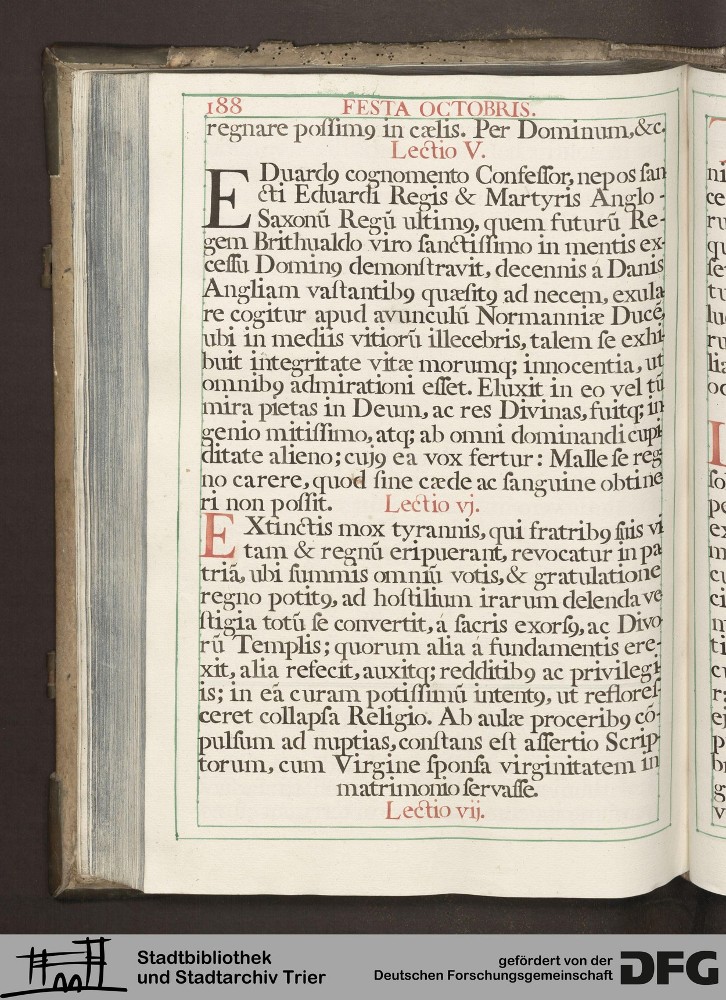 188 FESTA OCTOBRIS.
regnare poſſimꝰ in cælis. Per Dominum, &c.
Lectio V.
EDuardꝰ cognomento Confeſſor, nepos ſan
cti Eduardi Regis & Martyris Anglo-
Saxonū Regū ultimꝰ, quem futurū Re-
gem Brithualdo viro ſanctiſſimo in mentis ex-
ceſſu Dominꝰ demonſtravit, decennis á Danis
Angliam vaſtantibꝰ quæſitꝰ ad necem, exula
re cogitur apud avunculū Normanniæ Ducē,
ubi in mediis vitiorū illecebris, talem ſe exhi
buit integritate vitæ morumq; innocentia, ut
omnibꝰ admirationi eſſet. Eluxit in eo vel tū
mira pietas in Deum, ac res Divinas, fuitq; in
genio mitiſſimo, atq; ab omni dominandi cupi
ditate alieno; cujꝰ ea vox fertur: Malle ſe reg
no carere, quod ſine cæde ac ſanguine obtine
ri non poſſit. Lectio vj.
EXtinctis mox tyrannis, qui fratribꝰ ſuis vi
tam & regnū eripuerant, revocatur in pa
triā, ubi ſummis omniū votis, & gratulatione
regno potitꝰ, ad hoſtilium irarum delenda ve
ſtigia totū ſe convertit, á ſacris exorſꝰ, ac Divo
rū Templis; quorum alia á fundamentis ere-
xit, alia refecit, auxitq; redditibꝰ ac privilegi-
is; in eā curam potiſſimū intentꝰ, ut refloreſ-
ceret collapſa Religio. Ab aulæ proceribꝰ cō-
pulſum ad nuptias, conſtans eſt aſſertio Scrip-
torum, cum Virgine ſponſa virginitatem in
matrimonio ſervaſſe.
Lectio vij.
Stadtbibliothek
und Stadtarchiv Trier
gefördert von der
Deutschen Forschungsgemeinschaft
DFG